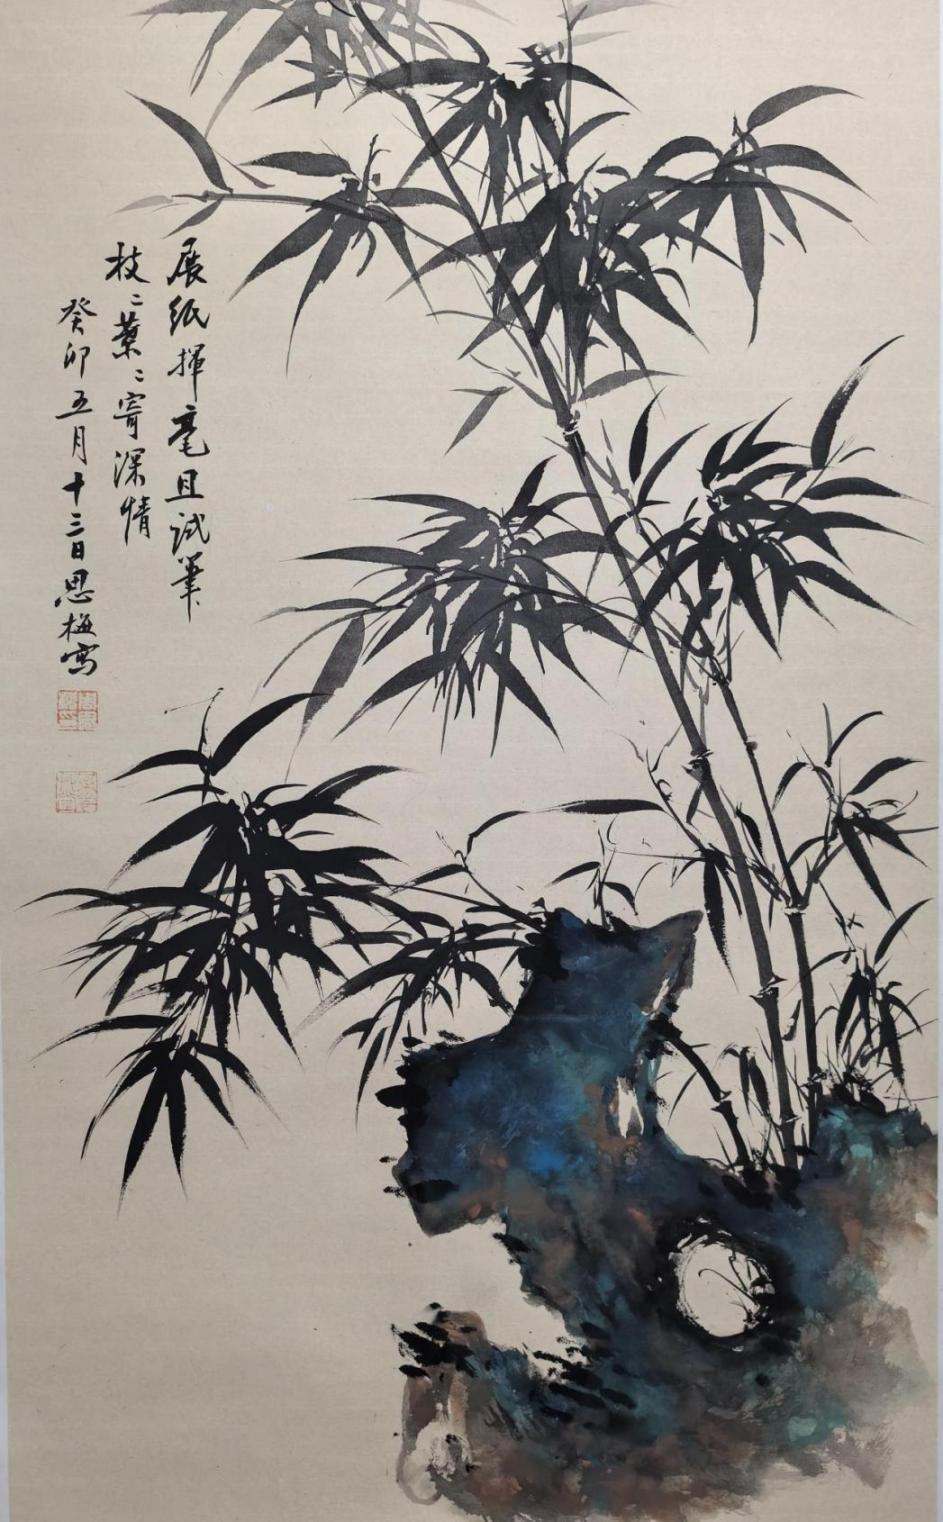 展纸挥毫且试笔
枝〻葉〻寄深情
癸卯五月十三日思梅写